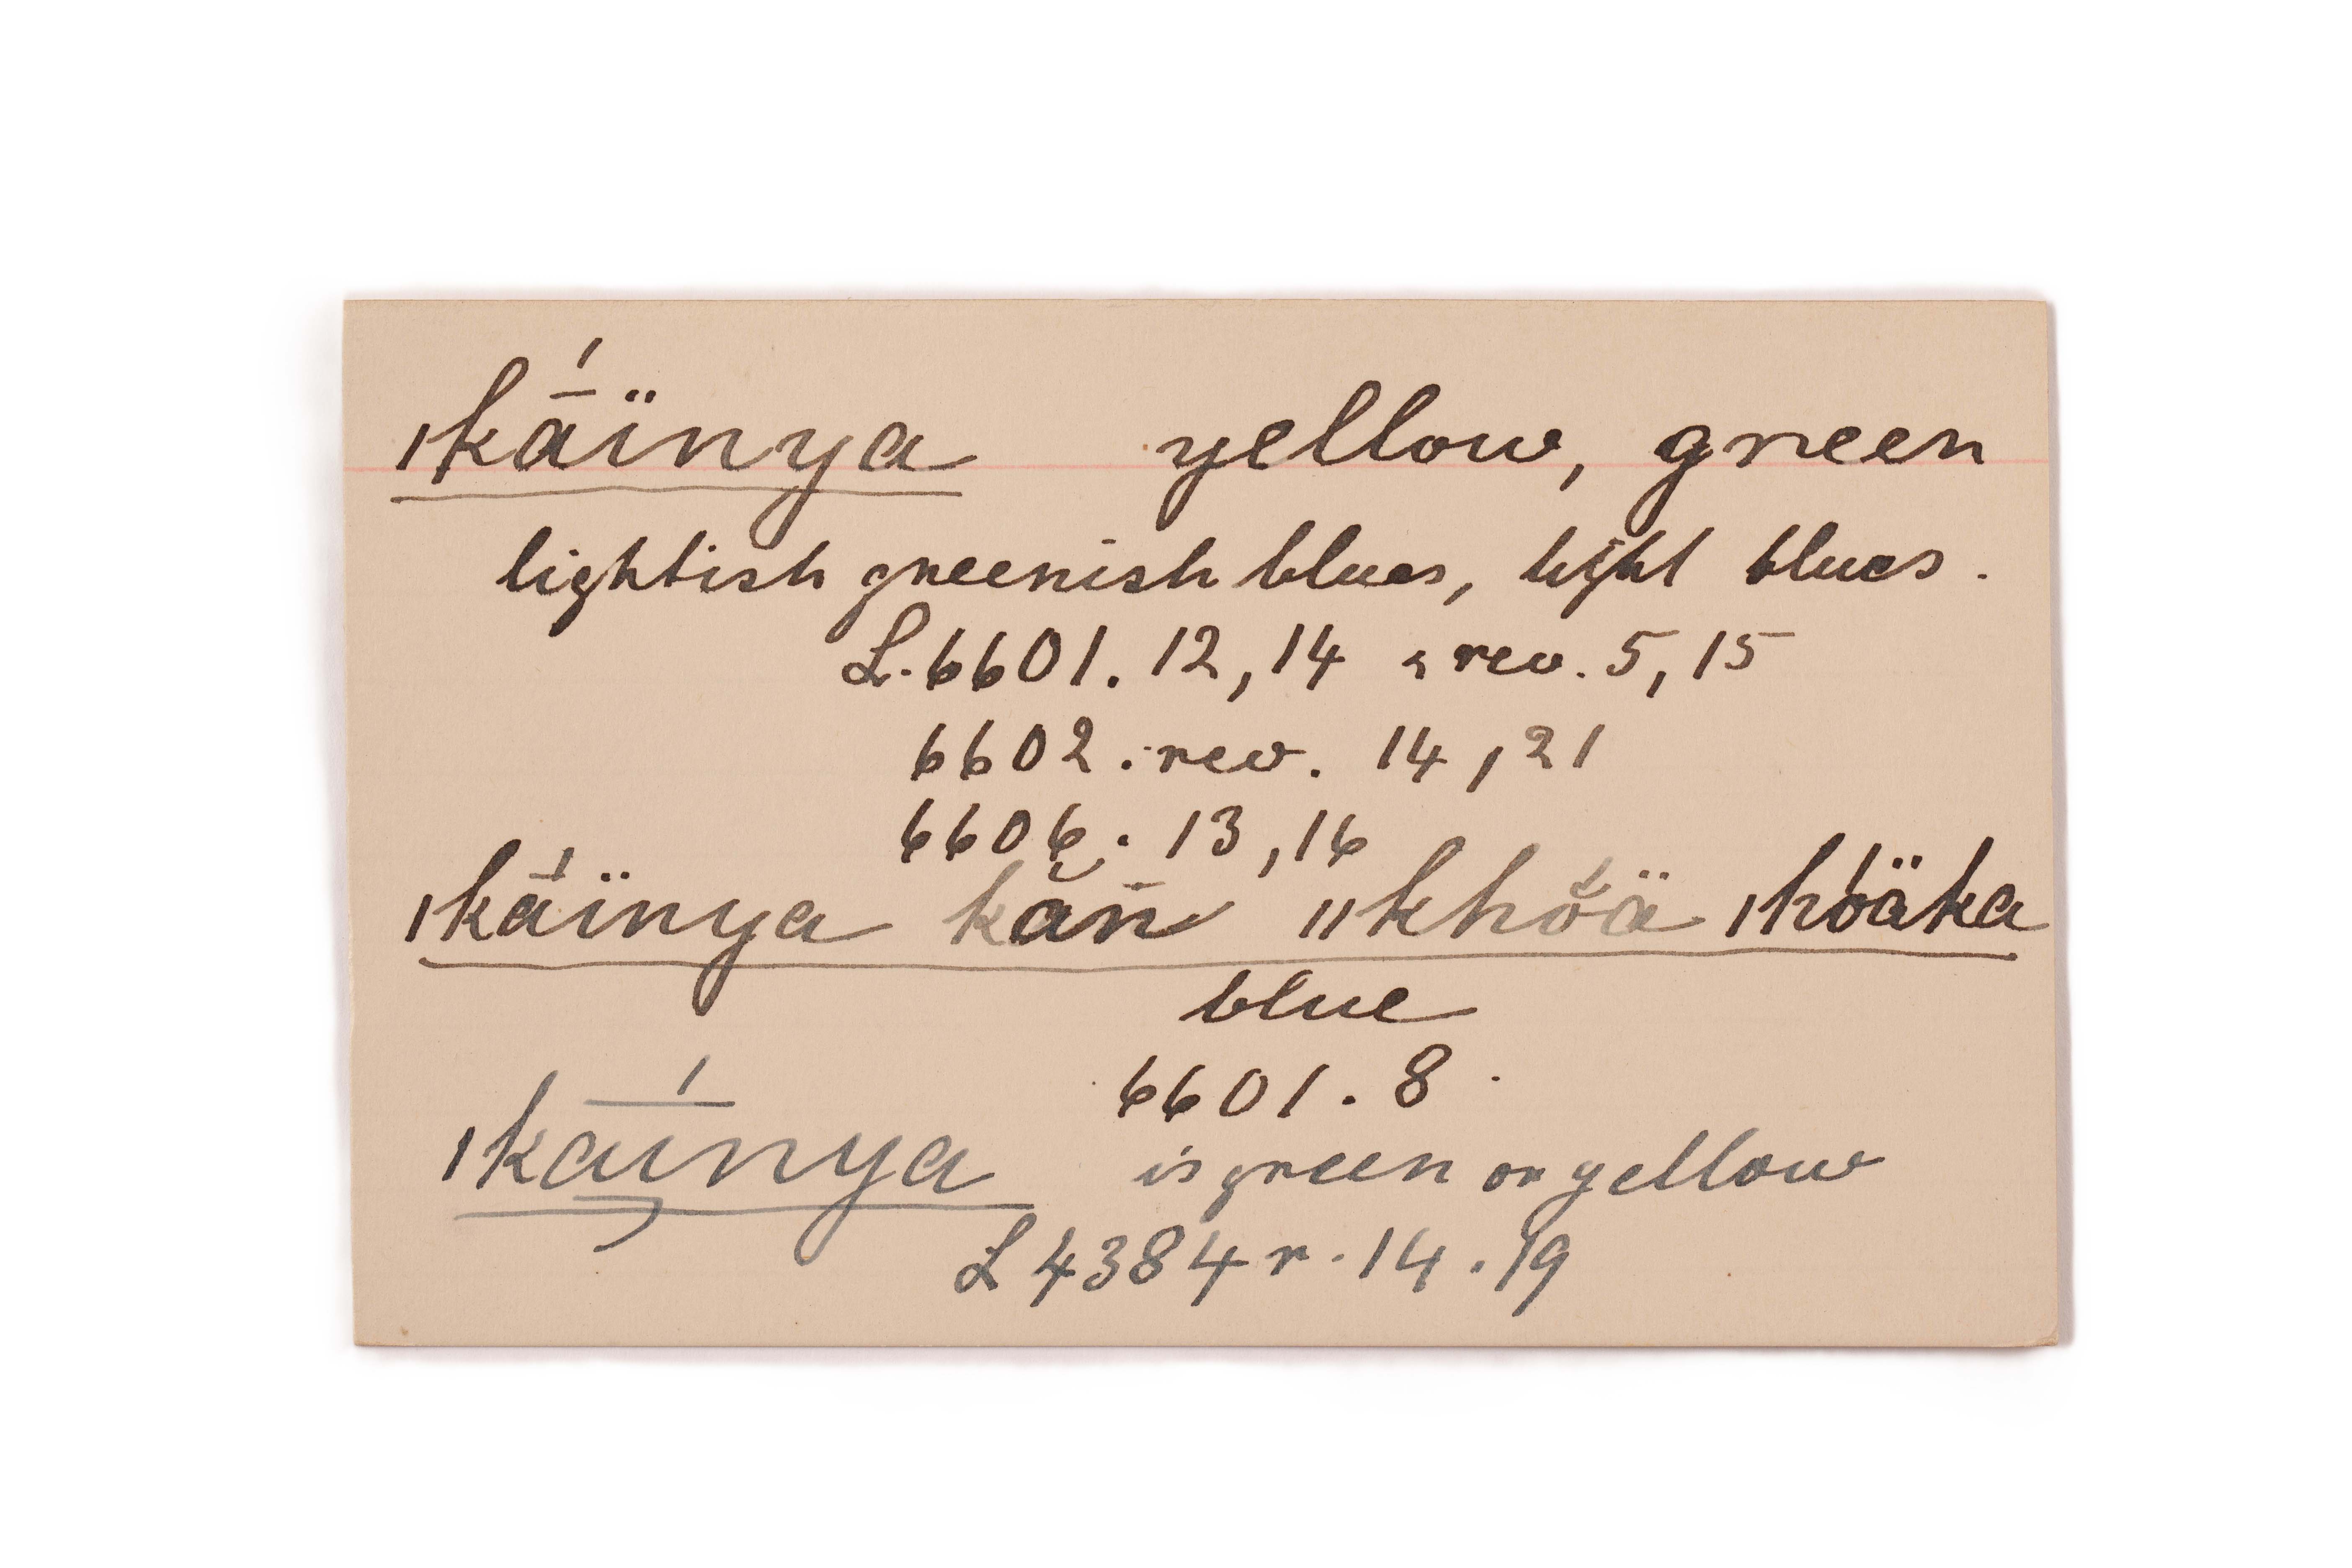 ǀkā́ïnya yellow, green
lightish greenish blues, light blues.
L. 6601. 12, 14 & rev. 5, 15
6602. rev. 14, 21
6606. 13, 16
ǀkā́ïnya kăn̄ ǁkhŏ́ä ǀhóäka
blue
6601. 8.
ǀkaínya is green or yellow
L 4384 r. 14. 19